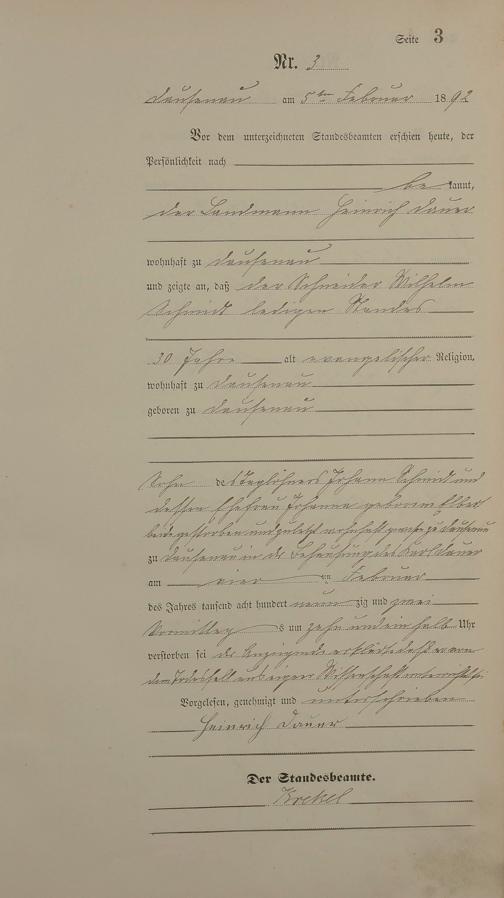 Seite 3
Nr. 3
Dausenau am 5ten Februar 1892
Vor dem unterzeichneten Standesbeamten erschien heute, der
Persönlichkeit nach
be kannt,
der Landmann Heinrich Dauer
wohnhaft zu Dausenau
und zeigte an, daß der Schneider Wilhelm
Schmidt ledigen Standes
30 Jahre alt evangelischer Religion,
wohnhaft zu Dausenau
geboren zu Dausenau
Sohn des Taglöhners Johann Schmidt und
dessen Ehefrau Johanna geborene
beide gestorben und zuletzt wohnhaft gewesen zu Dausenau
zu Dausenau in der Behausung des Karl Dauer
am vier ten Februar
des Jahres tausend acht hundert neun zig und zwei
Vormittag s um zehn und ein halb Uhr
verstorben sei der Anzeigende erklärte daß er von
dem Todesfall aus eigener Wissenschaft unterrichtet sei
Vorgelesen, genehmigt und unterschrieben
Heinrich Dauer
Der Standesbeamte.
Krekel